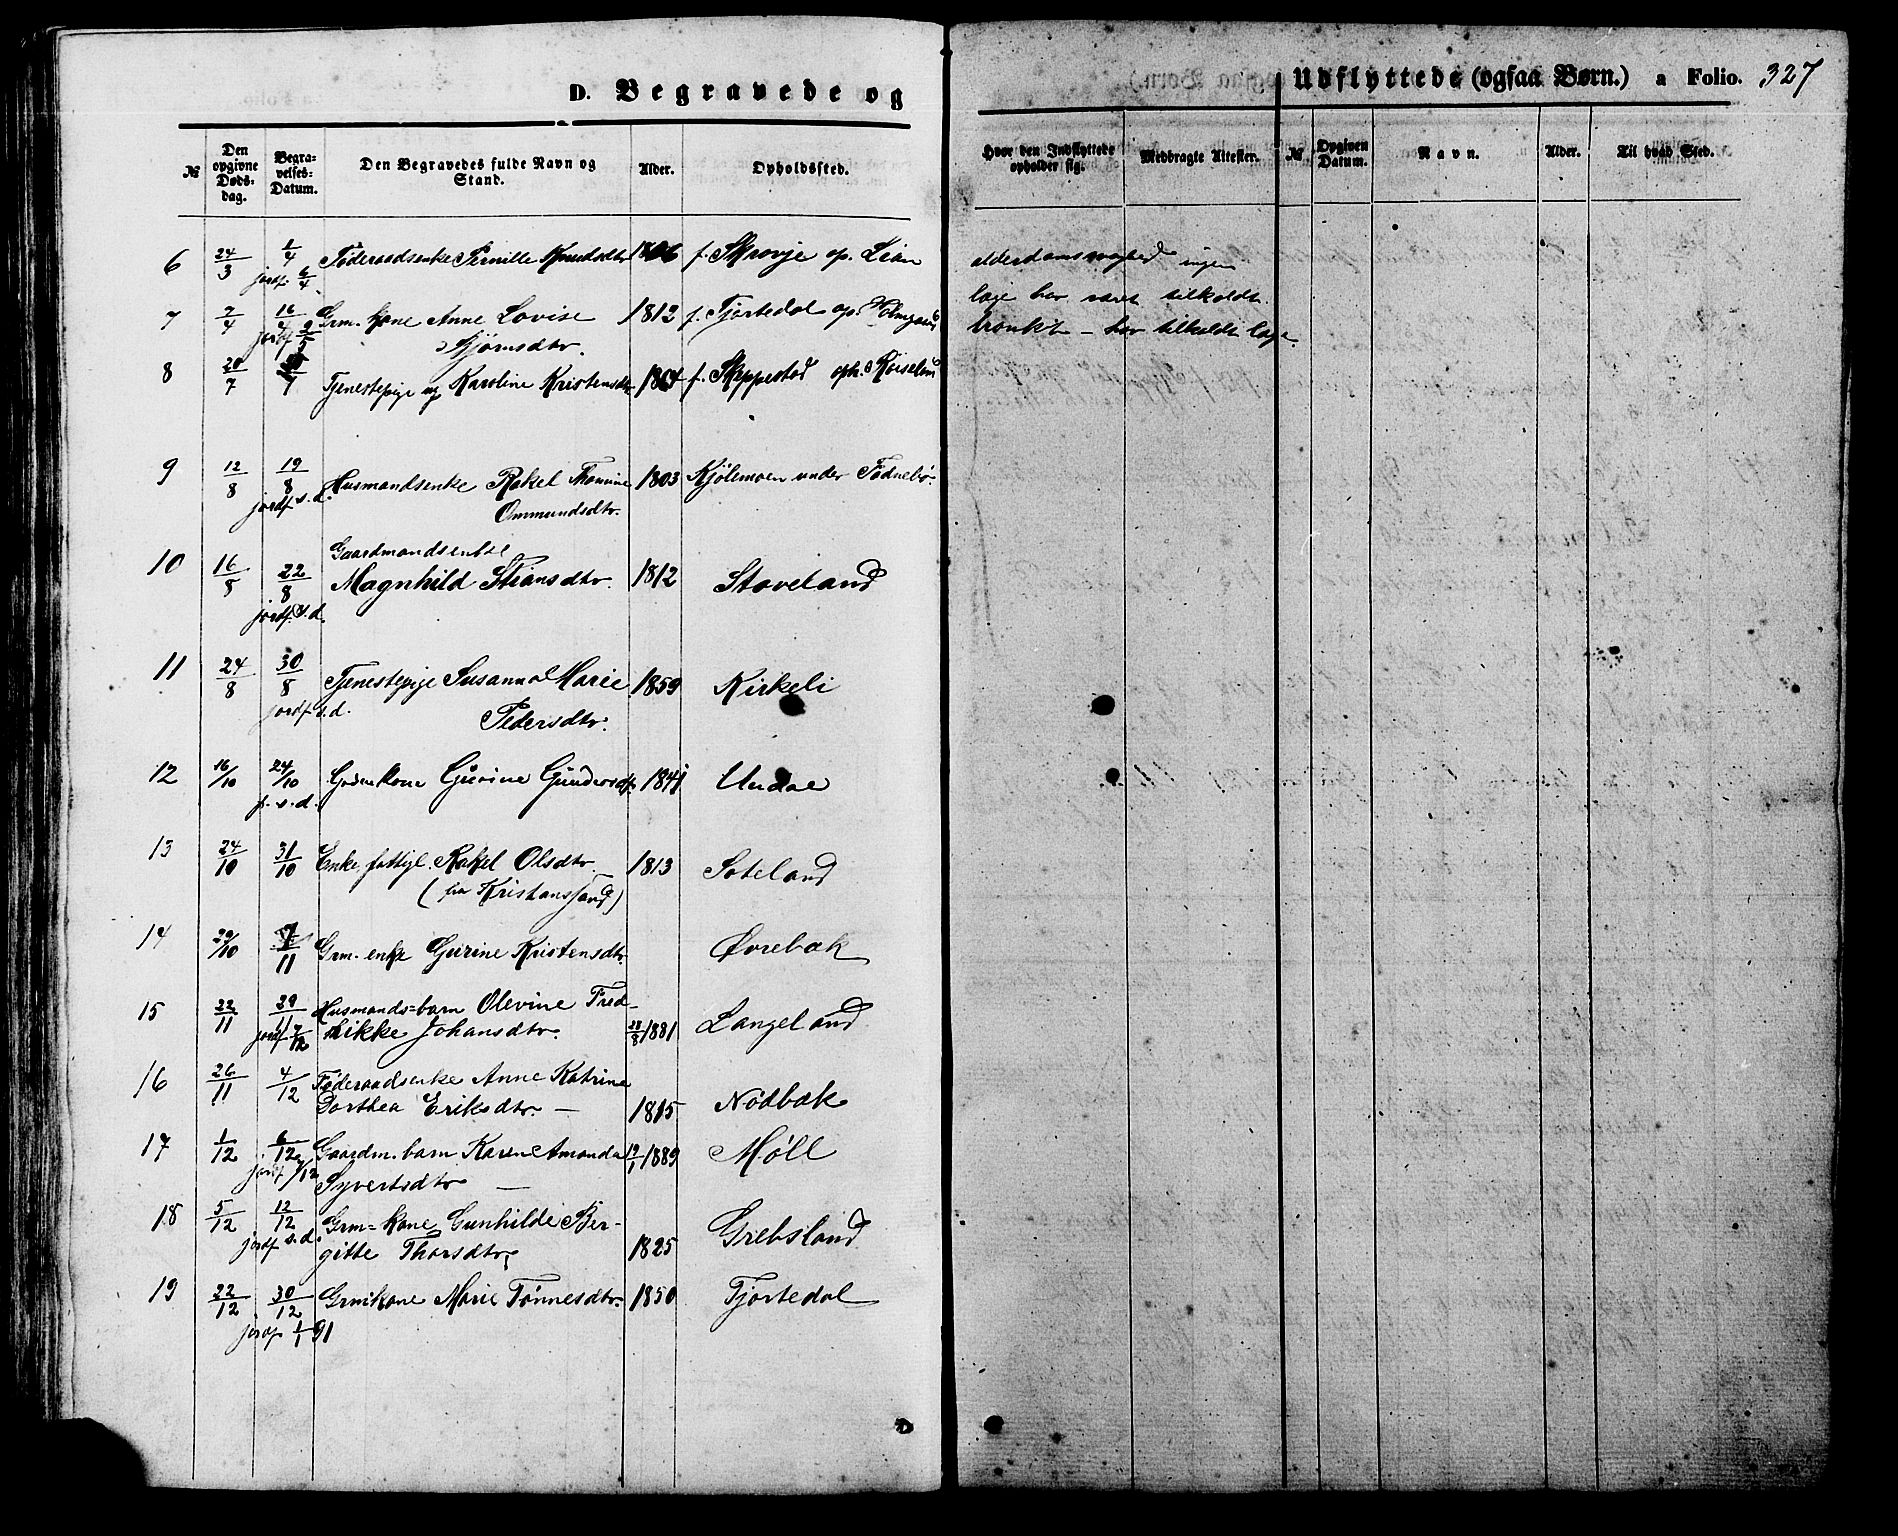 D. Begravede og
Udflyttede (ogsaa Børn.) a Folio. 327
№ Den opgivne Døds-dag. Begra-velses-Datum. Den Begravedes fulde Navn og Stand. Alder. Opholdssted.
Hvor den Indflyttede opholder sig. Medbragte Attester. № Opgiven Datum. Navn. Alder. Til hvad Sted.
6 24/3 1/4 Føderaadsenke Pernille Knudsdtr. 1806 f. Skrovje op. Lian alderdomssvaghed ingen
jordf. 6/4 læge har været tilkaldt.
7 7/4 16/4 Grm. kone Anne Lovise 1812 f. Fjortedal op. bronkit – har tilkaldt læge.
jordf. 9/5 Bjørnsdtr.
8 20/7 Tjenestepige ug. Karoline Kristensdtr. 1864 f. Skeppestad oph.
9 12/8 19/8 Husmandsenke Rakel Thomine 1803 Kjölemoen under Fodnebö.
jordf. s.d. Ommundsdtr.
10 16/8 22/8 Gaardmandsenke
Magnhild Stiansdtr. 1812 Stoveland
jordf. s.d.
11 24/8 30/8 Tjenestepige Susanna Marie 1859 Kirkeli
jordf. s.d. Pedersdtr.
12 16/10 24/10 Gurine Gundersdtr. 1841 Undal
j. s. d.
13 24/10 31/10 Enke, fattigl. Rakel Olsdtr. 1813 Soteland
(fra Kristiansand)
14 29/10 7/11 Grm. enke Gurine Kristensdtr. Øvrebæk
15 22/11 29/11 Husmands=barn Olevine Fred-
jordf. 7/12 rikke Johansdtr. 28/8 1881 Langeland
16 26/11 4/12 Føderaadsenke Anne Katrine
Dorthea Eriksdtr. — 1815 Nödbæk
17 1/12 6/12 Gaardm. barn Karen Amanda 19/1 1889 Møll
jordf. /12 Syvertsdtr —
18 5/12 12/12 Grm= kone Gunhilde Ber-
jordf s.d. gitte Thorsdtr. 1825 Grebsland
19 22/12 30/12 Grmkone Marie Tönnesdtr. 1850 Fjortedal
jordf 1/1 91